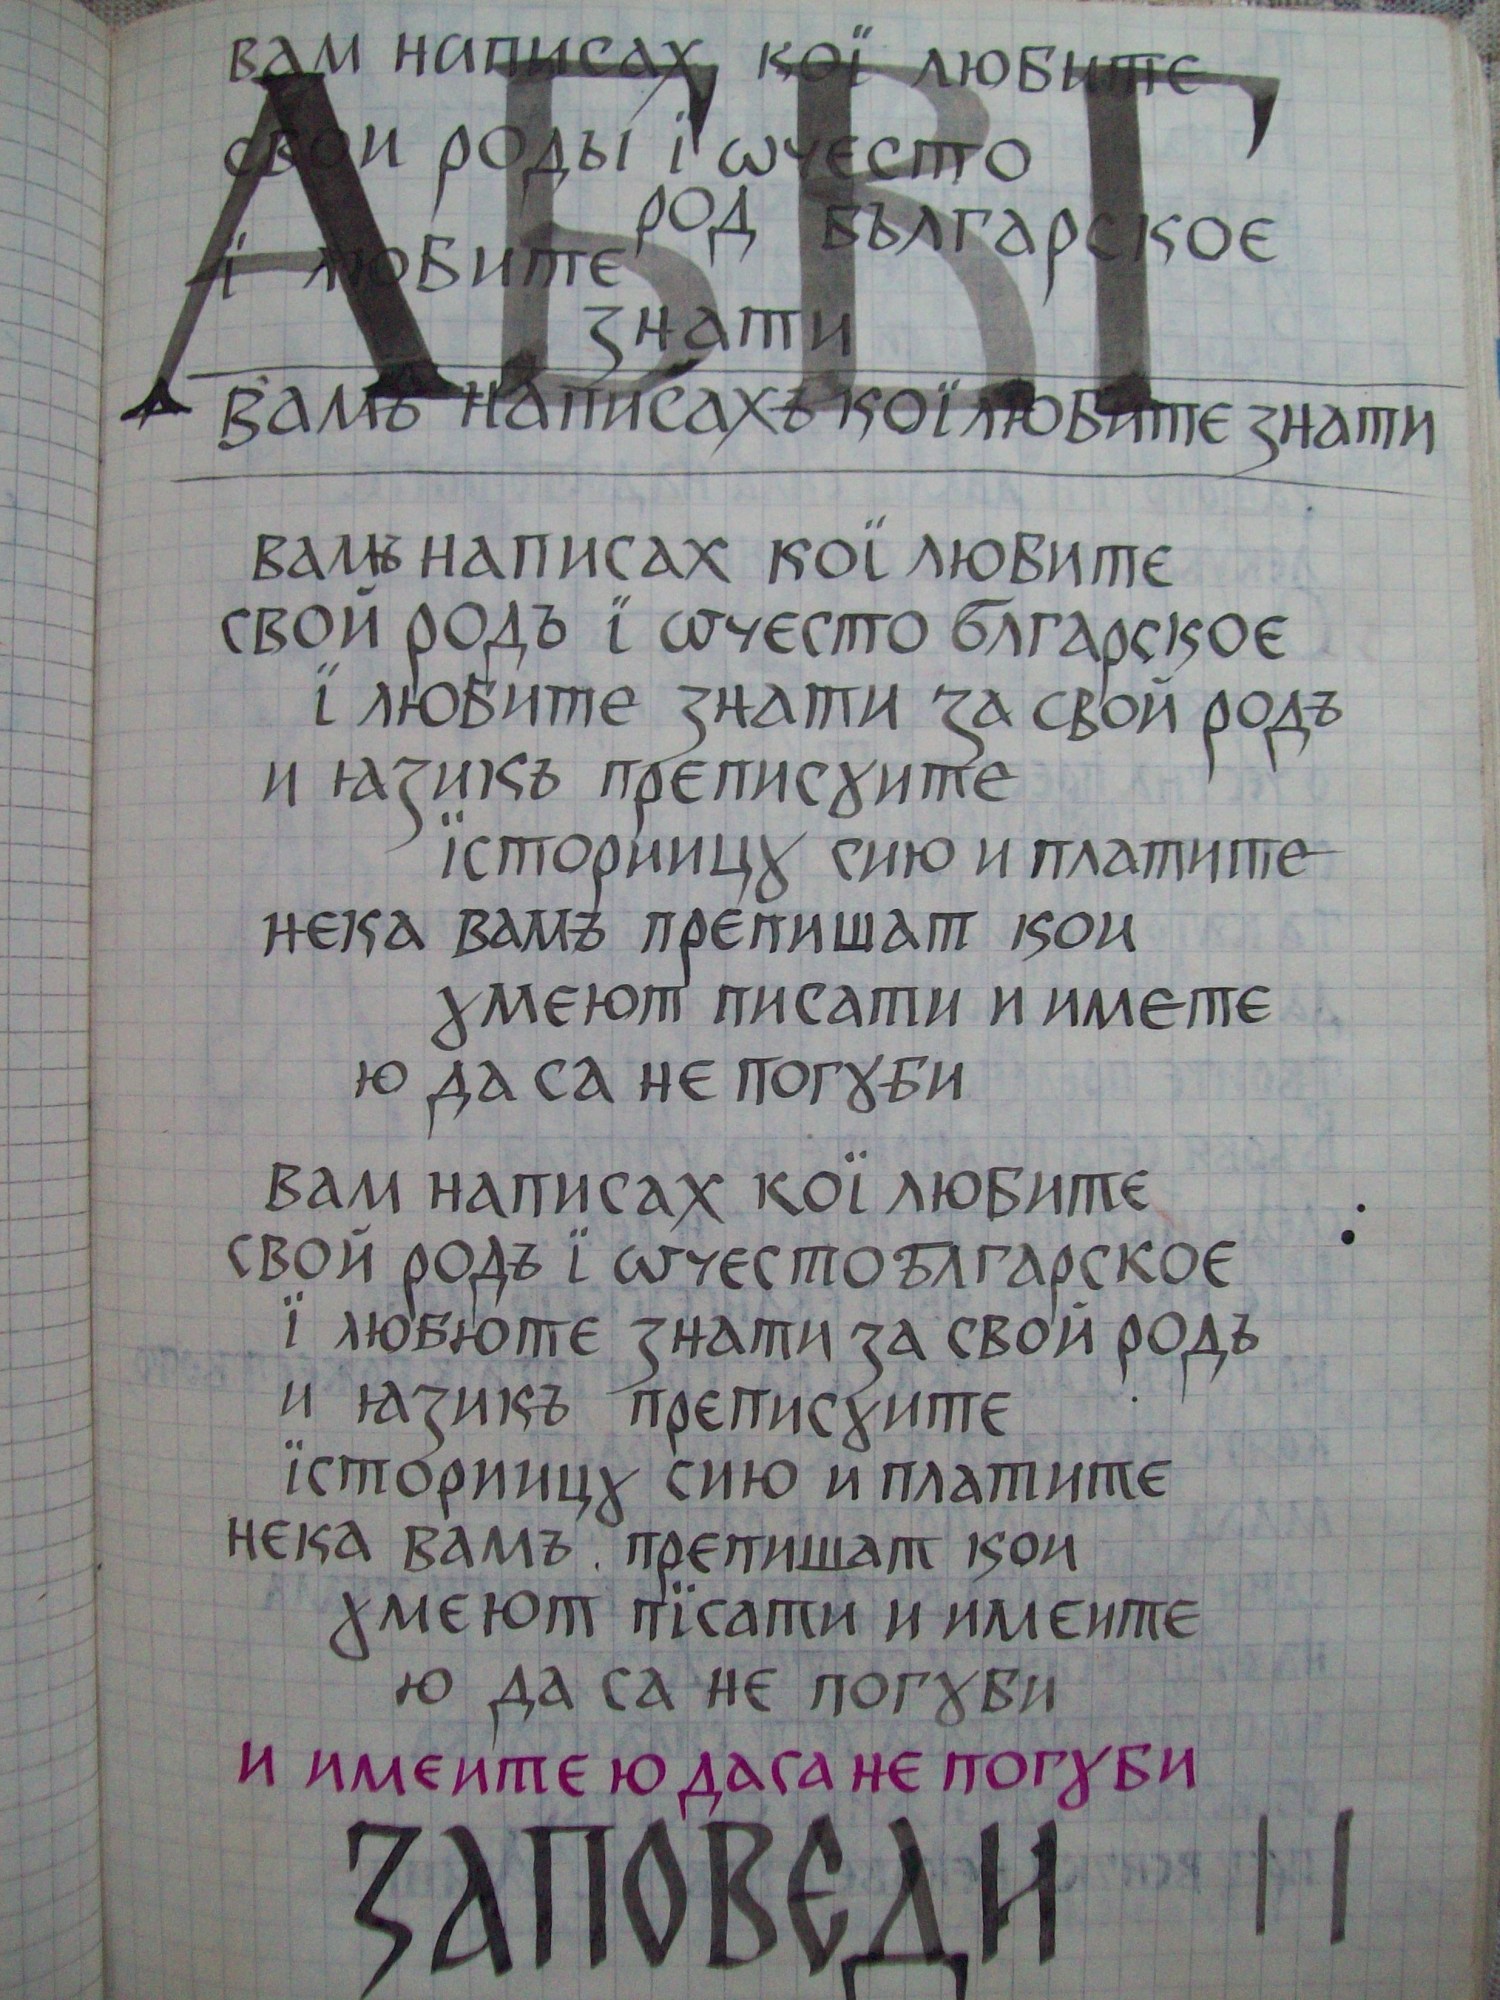 АБВГ
вам написах кої любите
свои роды і ѡчесто
род българское
ї любите
знати
вамъ написахъ кої любите знати
вамъ написах кої любите
свой родъ ї ѿчесто блгарское
ї любите знати за свой родъ
и ꙗзикъ преписꙋите
їсториицꙋ сию и платите
нека вамъ препишат кои
ꙋмеют писати и имете
ю да са не погꙋби
вам написах кої любите
свой родъ ї ѿчесто блгарское
ї любюте знати за свой родъ
и ꙗзикъ преписꙋите
їсториицꙋ сию и платите
нека вамъ препишат кои
ꙋмеют пїсати и имеите
ю да са не погꙋби
и имеите ю да са не погꙋби
ЗАПОВЕДИ